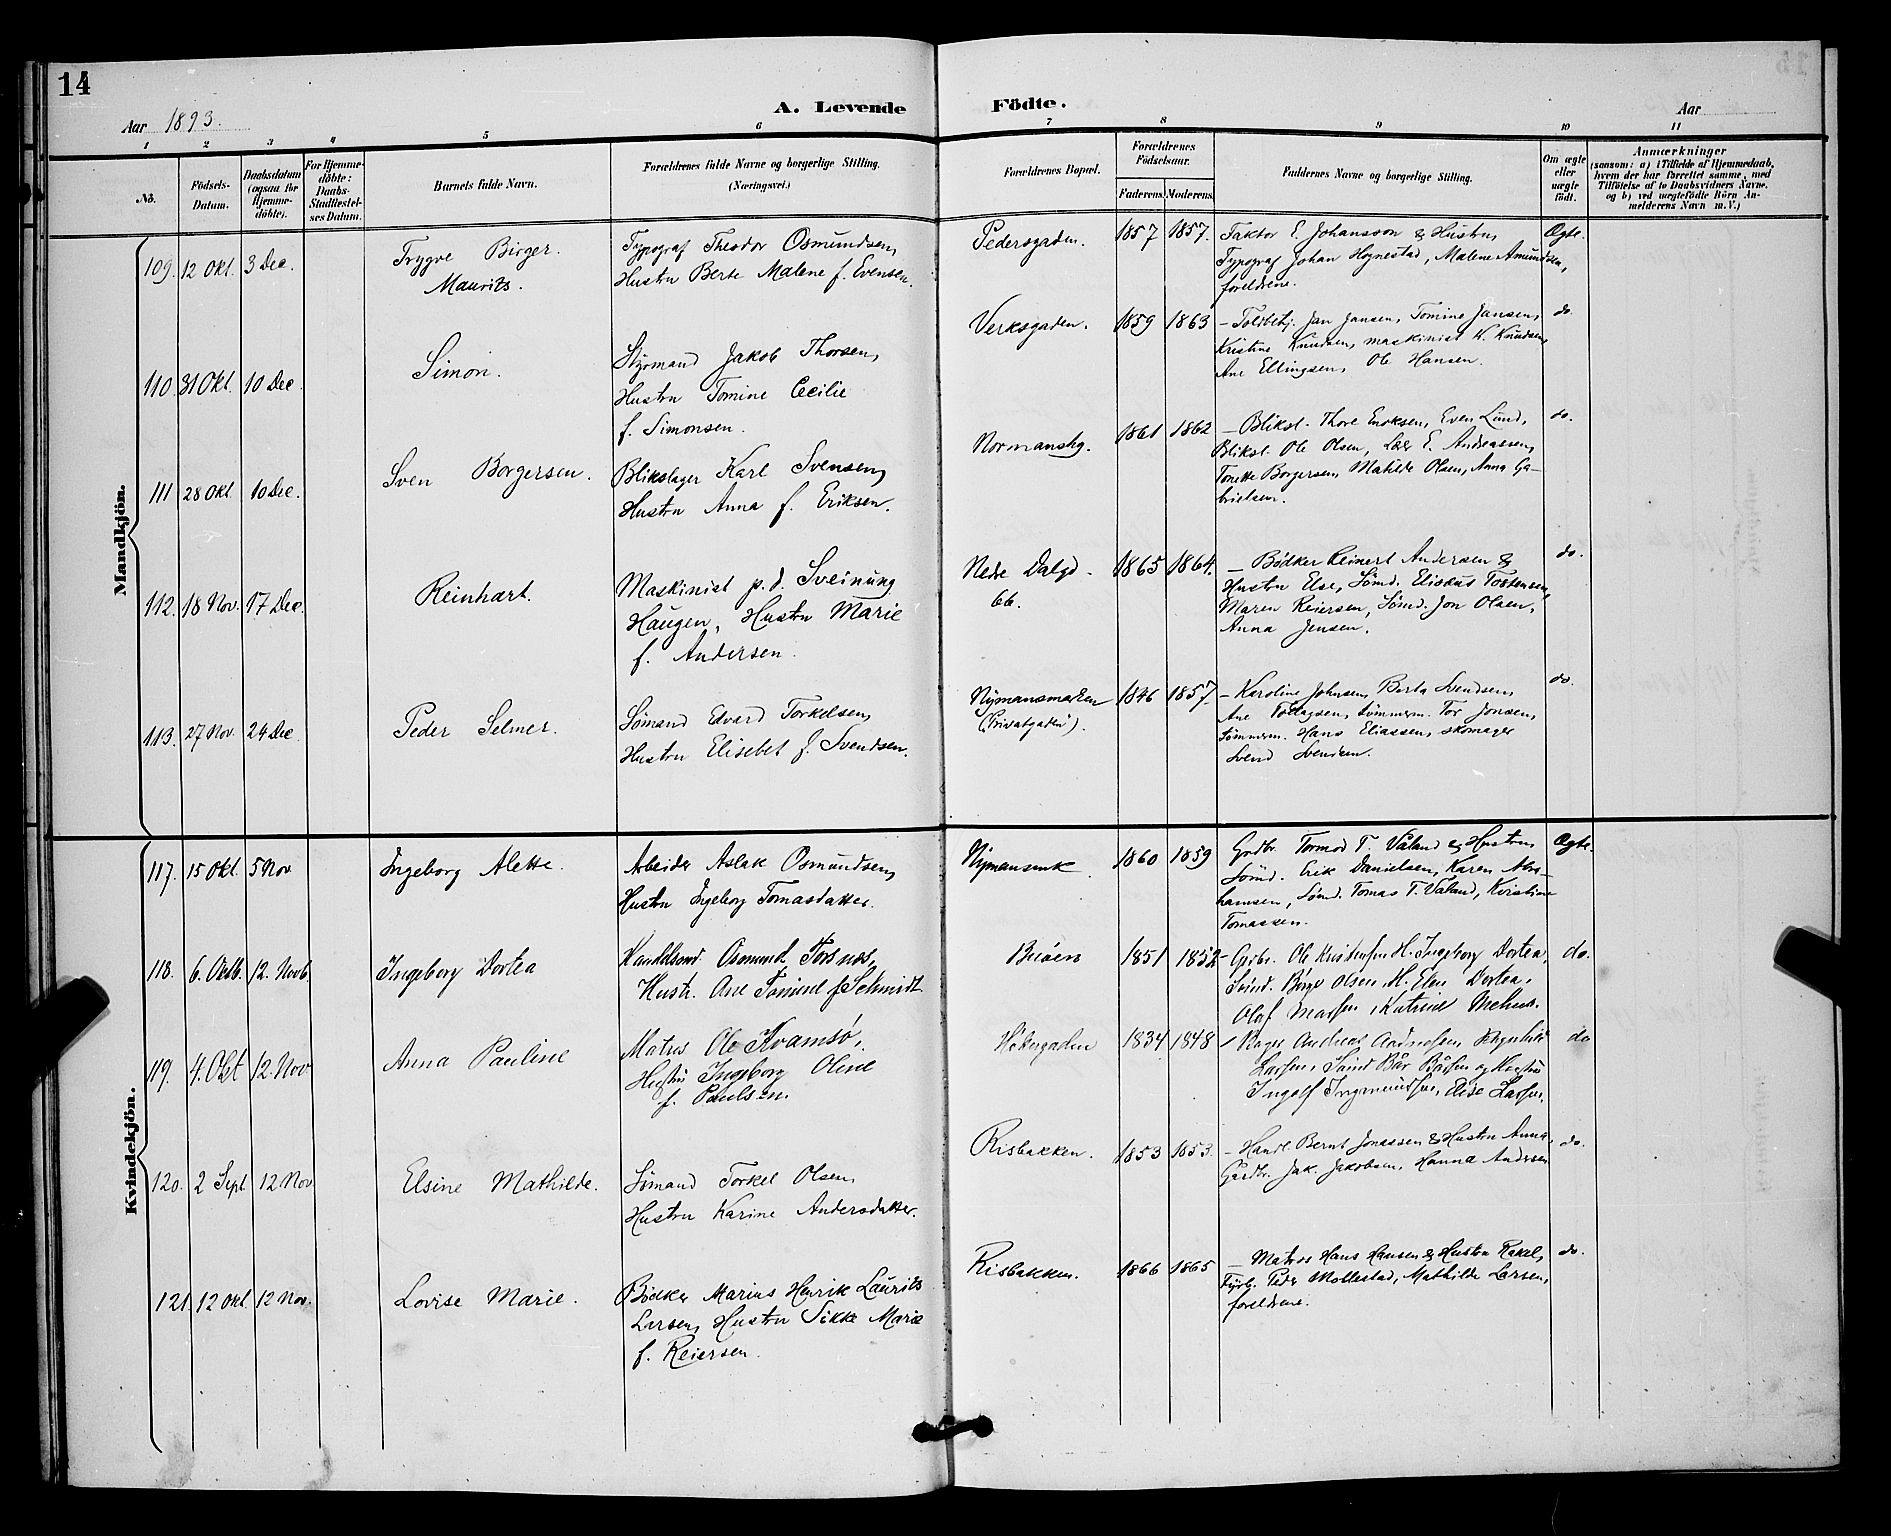 14
A. Levende Födte.
Aar 1893.
Aar
1 2 3 4 5 6 7 8 9 10 11
No.
Födsels-Datum.
Daabsdatum (ogsaa for Hjemmedöbte).
For Hjemmedöbte: Daabs-Stadfestelses Datum.
Barnets fulde Navn.
Forældrenes fulde Navne og borgerlige Stilling. (Næringsvei.)
Forældrenes Bopæl.
Forældrenes Födselsaar.
Faderens. Moderens.
Faddernes Navne og borgerlige Stilling.
Om ægte eller uægte födt.
Anmærkninger
(saasom: a) i Tilfælde af Hjemmedaab, hvem der har forrettet samme, med Tilföielse af to Daabsvidners Navne, og b) ved uægtefödte Börn Anmelderens Navn m.V.)
Mandkjön.
109. 12 Okt. 3 Dec.
Trygve Birger
Maurits.
Typograf Theodor Osmundsen,
Hustru Berte Malene f. Evensen.
Pedersgaden. 1857 1857.
Faktor E. Johansson & Hustru,
Typograf Johan Hognestad, Malene Amundsen,
foreldrene.
Ægte.
110. 31 Okt. 10 Dec.
Simon.
Styrmand Jakob Thorsen,
Hustru Tomine Cecilie
f. Simonsen.
Verksgaden. 1859 1863
– Toldbetj. Jan Jansen, Tomine Jansen,
Kristine Knudsen, maskinist K. Knudsen,
Ane Ellingsen, Ole Hansen.
do.
111 28 Okt. 10 Dec.
Sven Borgersen.
Blikslager Karl Svensen,
Hustru Anna f. Eriksen.
Normanshg. 1861 1862
– Bliksl. Thore Enoksen, Even Lund,
Bliksl. Ole Olsen, E. Andreassen,
Tonette Borgersen, Matilde Olsen, Anna Ga-
brielsen.
do.
112. 18 Nov. 17 Dec.
Reinhart.
Maskinist p.d. Sveinung
Haugen, Hustru Marie
f. Andersen.
Nedre Dalgd.
66.
1865 1864.
– Bødker Reinert Andersen &
Hustru Else, Sømd. Elisæus Tostensen,
Maren Reiersen, Sømd. Jon Olsen,
Anna Jensen.
do.
113. 27 Nov. 24 Dec.
Peder Selmer.
Sømand Edvard Torkelsen,
Hustru Elisebet f. Svendsen.
Nymansmarken
(Privatgaden).
1846 1857.
– Karoline Johnsen, Berta Svendsen,
Ane tømmerm. Tor Jonsen,
tømmerm. Hans Eliassen, skomager
Svend Svendsen.
do.
Kvindekjön.
117. 15 Okt. 5 Nov
Ingeborg Alette.
Arbeider Aslak Osmundsen,
Hustru Ingeborg Tomasdatter.
Nymansmk. 1860 1859
Grdbr. Tormod T. Våland & Hustru,
Sømd. Erik Danielsen, Karen Abra-
hamsen, Sømd. Tomas T. Våland, Kristine
Tomassen.
Ægte.
118. 6. Oktb. 12. Novb.
Ingeborg Dortea
Handelsmd. Osmund
Hustr. Ane Tomine f Schmidt
Buøen 1851 1852
– Grdbr. Ole Kristensen H. Ingeborg Dortea,
Sømd. Børge Olsen, H. Elen Dortea,
Olaf Katrine
do.
119. 4. Okt 12. Nov
Anna Pauline
Matros Ole Kvamsø,
Hustru Ingeborg Oline
f. Paulsen.
Høkergaden 1834 1848
Bager Andreas Ragnhild
Larsen, Sømd Bår Bårsen og Hustru
Ingolf Elise Larsen.
do
120. 2 Sept 12 Nov
Elsine Mathilde.
Sømand Torkel Olsen,
Hustru Karine Andersdatter.
Risbakken. 1853 1853.
– Handl. Bernt Jonassen & Hustru Anna,
Gardbr. Jak. Jakobsen, Hanna Andersen
do.
121 12 Okt. 12 Nov.
Lovise Marie.
Bødker Marius Henrik Laurits
Larsen, Hustru Sikke Marie
f. Reiersen.
Risbakken. 1866 1865
– Matros Hans Hansen & Hustru Rakel,
Fyrb. Peder Mollestad, Mathilde Larsen,
foreldrene.
do.